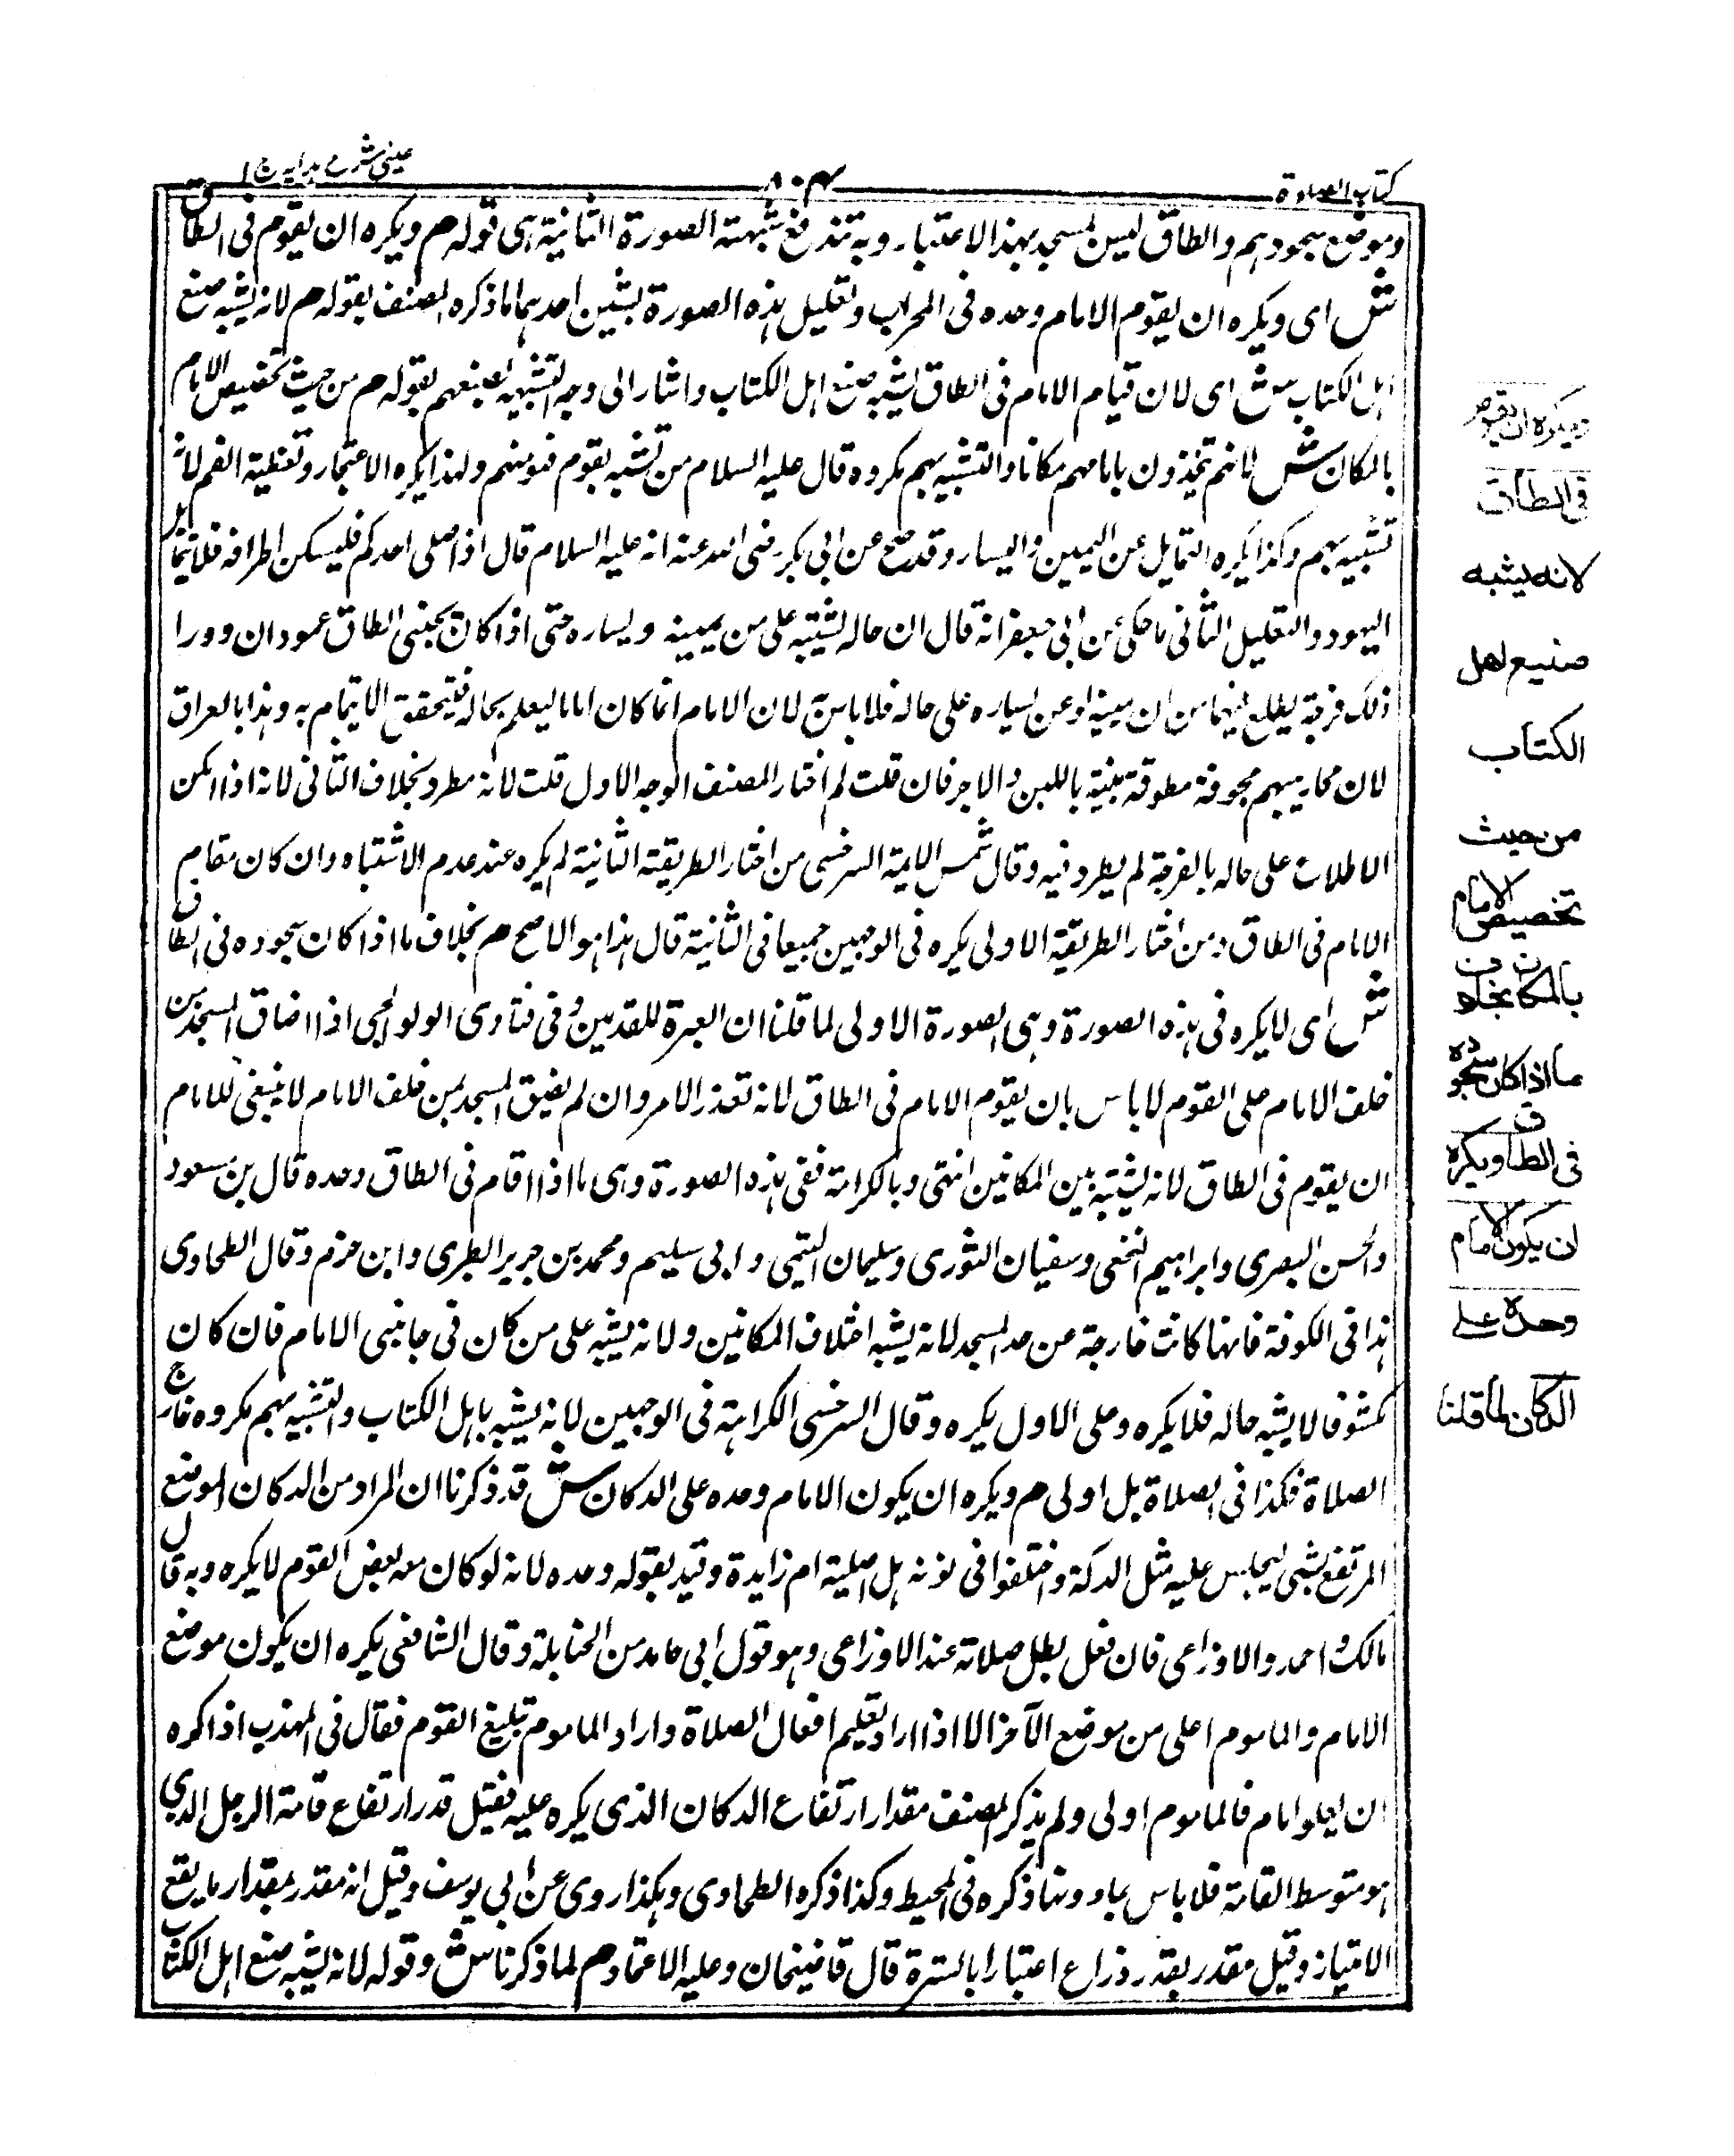 كتاب الصلوة
٨٠٤
عينى شرح هدايه ج ١
وموضع سجودهم والطاق ليس لمسجد بهذا الاعتبار وبه تندفع شبهته الصورة الثانية هى قوله م ويكره ان يقوم فى الطاق
ش اى ويكره ان يقوم الامام وحده فى المحراب وتعليل هذه الصورة بشيئين احدهما ما ذكره المصنف بقوله م لانه يشبه صنع
اهل الكتاب ش اى لان قيام الامام فى الطاق يشبه صنع اهل الكتاب واشار الى وجه التشبيه لصنعهم بقوله م من حيث تخصيص الامام
بالمكان ش لانهم يتخذون بامامهم مكانا والتشبيه بهم مكروه قال عليه السلام من تشبه بقوم فهو منهم ولهذا يكره الاعتجار وتغطية الفم لانه
تشبيه بهم وكذا يكره التمايل عن اليمين واليسار وقد صح عن ابى بكر رضى الله عنه انه عليه السلام قال اذا صلى احدكم فليسكن اطرافه فلا يتمايل
اليهود والتعليل الثانى ما حكى عن ابى جعفر انه قال ان حاله يشتبه على من يمينه ويساره حتى اذا كان بجنبى الطاق عمودان وورا
ذلك فرجة يطلع فيهما من ان يمينه او عن يساره على حاله فلا باس به لان الامام انما كان اماما ليعلم بحاله فيتحقق الايتمام به وهذا بالعراق
لان محاريبهم مجوفة مطوقة مبنية باللبن والاجر فان قلت لم اختار المصنف الوجه الاول قلت لانه مطرد بخلاف الثانى لانه اذا امكن
الاطلاع على حاله بالفرجة لم يطرد فيه وقال شمس الايمة السرخسى من اختار الطريقة الثانية لم يكره عند عدم الاشتباه وان كان مقام
الامام فى الطاق ومن اختار الطريقة الاولى يكره فى الوجهين جميعا فى الثانية قال هذا هو الاصح م بخلاف ما اذا كان سجوده فى الطاق
ش اى لا يكره فى هذه الصورة وهى الصورة الاولى لما قلنا ان العبرة للقدمين وفى فتاوى الولوالجى اذا ضاق المسجد بمن
خلف الامام على القوم لا باس بان يقوم الامام فى الطاق لانه تعذر الامر وان لم يضيق المسجد لمن خلف الامام لا ينبغى للامام
ان يقوم فى الطاق لانه يشتبه بين المكانين انتهى وبالكراهة ففى هذه الصورة وهى ما اذا اقام فى الطاق وحده قال بن مسعود
والحسن البصرى وابراهيم النخعى وسفيان الثورى وسليمان التيمى وابى سليم ومحمد بن جرير الطبرى وابن حزم وقال الطحاوى
هذا فى الكوفة فانها كانت خارجة من حد المسجد لانه يشبه اختلاف المكانين ولانه يشبه على من كان فى جانبى الامام فان كان
مكشوفا لا يشبه حاله فلا يكره وعلى الاول يكره وقال السرخسى الكراهة فى الوجهين لانه يشبه باهل الكتاب والتشبيه بهم مكروه خارج
الصلاة فكذا فى الصلاة بل اولى م ويكره ان يكون الامام وحده على الدكان ش قد ذكرنا ان المراد من الدكان الموضع
المرتفع يشبى ليجلس عليه مثل الدكة واختلفوا فى نونه هل اصلية ام زايدة وقيد بقوله وحده لانه لو كان معه بعض القوم لا يكره وبه قال
مالك واحمد والاوزاعى فان فعل بطل صلاته عند الاوزاعى وهو قول ابى حامد من الحنابلة وقال الشافعى يكره ان يكون موضع
الامام والماموم اعلى من موضع الآخر الا اذا اراد تعليم افعال الصلاة واراد الماموم تبليغ القوم فقال فى المهذب اذا كره
ان يعلو امام فالماموم اولى ولم يذكر المصنف مقدار ارتفاع الدكان الذى يكره عليه فقيل قدر ارتفاع قامة الرجل الذي
هو متوسط القامة فلا باس بما دونها ذكره فى المحيط وكذا ذكره الطحاوى وهكذا روى عن ابى يوسف وقيل انه مقدر بمقدار ما يقع
الامتياز وقيل مقدر بقدر ذراع اعتبارا بالسترة قال قاضيخان وعليه الاعتماد م لما ذكرنا ش وقوله لانه يشبه صنع اهل الكتاب
ويكره ان يقوم
فى الطاق
لانه يشبه
صنيع اهل
الكتاب
من حيث
تخصيص الامام
بالمكان بخلاف
ما اذا كان سجوده
فى الطاق ويكره
ان يكون الامام
وحده على
الدكان لما قلنا